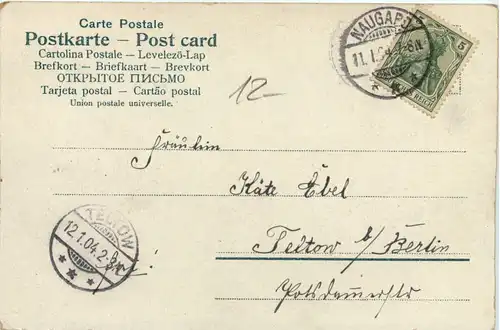 Carte Postale
Postkarte – Post card
Cartolina Postale – Levelező-Lap
Brefkort – Briefkaart – Brevkort
ОТКРЫТОЕ ПИСЬМО
Tarjeta postal – Cartão postal
Union postale universelle.
12-
NAUGARD
11.1.04
5
REICH
Fräulein
Käte Ebel
Teltow b/Berlin
Potsdamerstr
TELTOW
12.1.04.2-3N